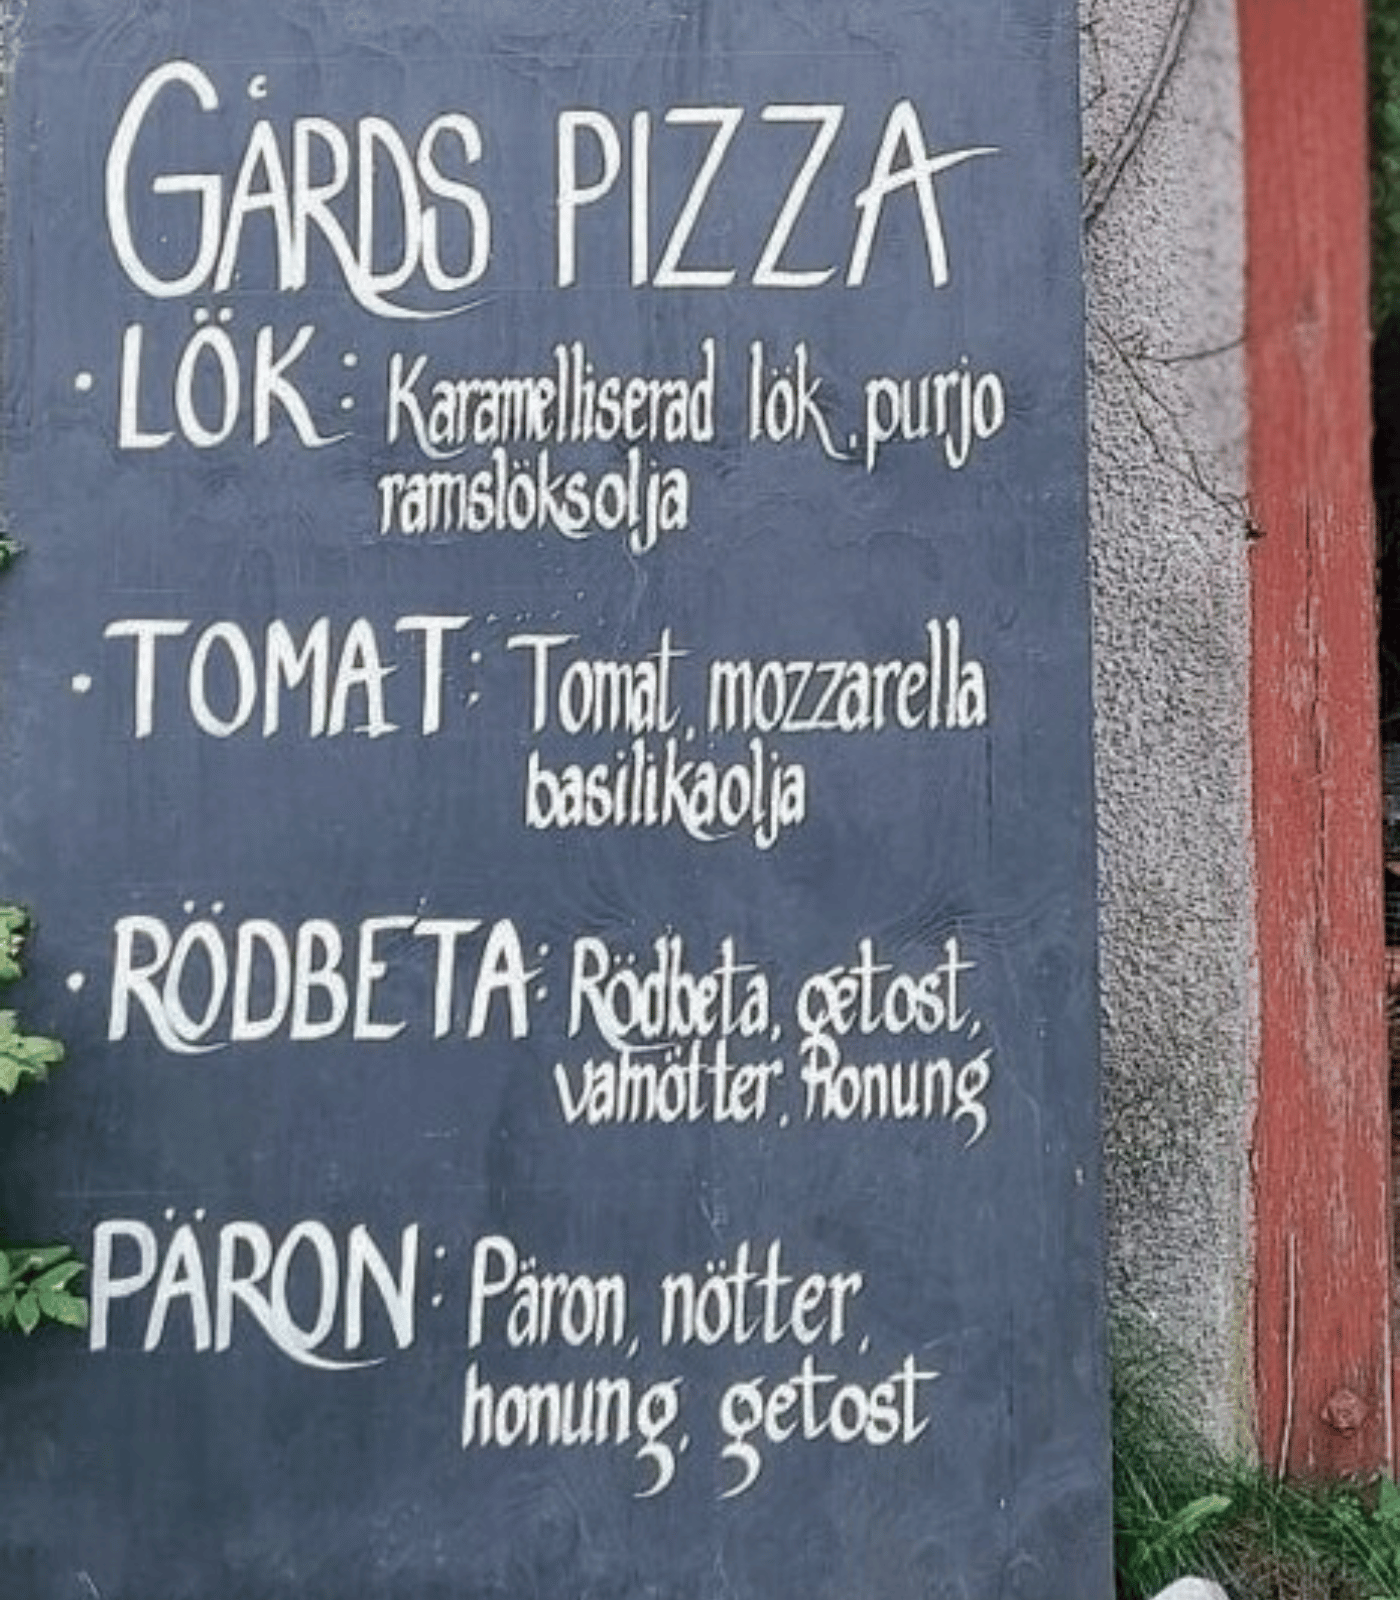 GÅRDS PIZZA
· LÖK: Karamelliserad lök, purjo
ramslöksolja
· TOMAT: Tomat, mozzarella
basilikaolja
· RÖDBETA: Rödbeta, getost,
valnötter, honung
PÄRON: Päron, nötter,
honung, getost